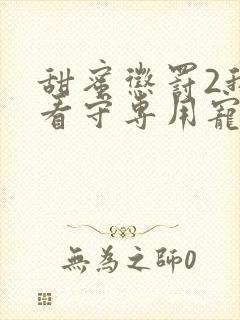 甜蜜懲罰2我
看守專用寵
無為之師0